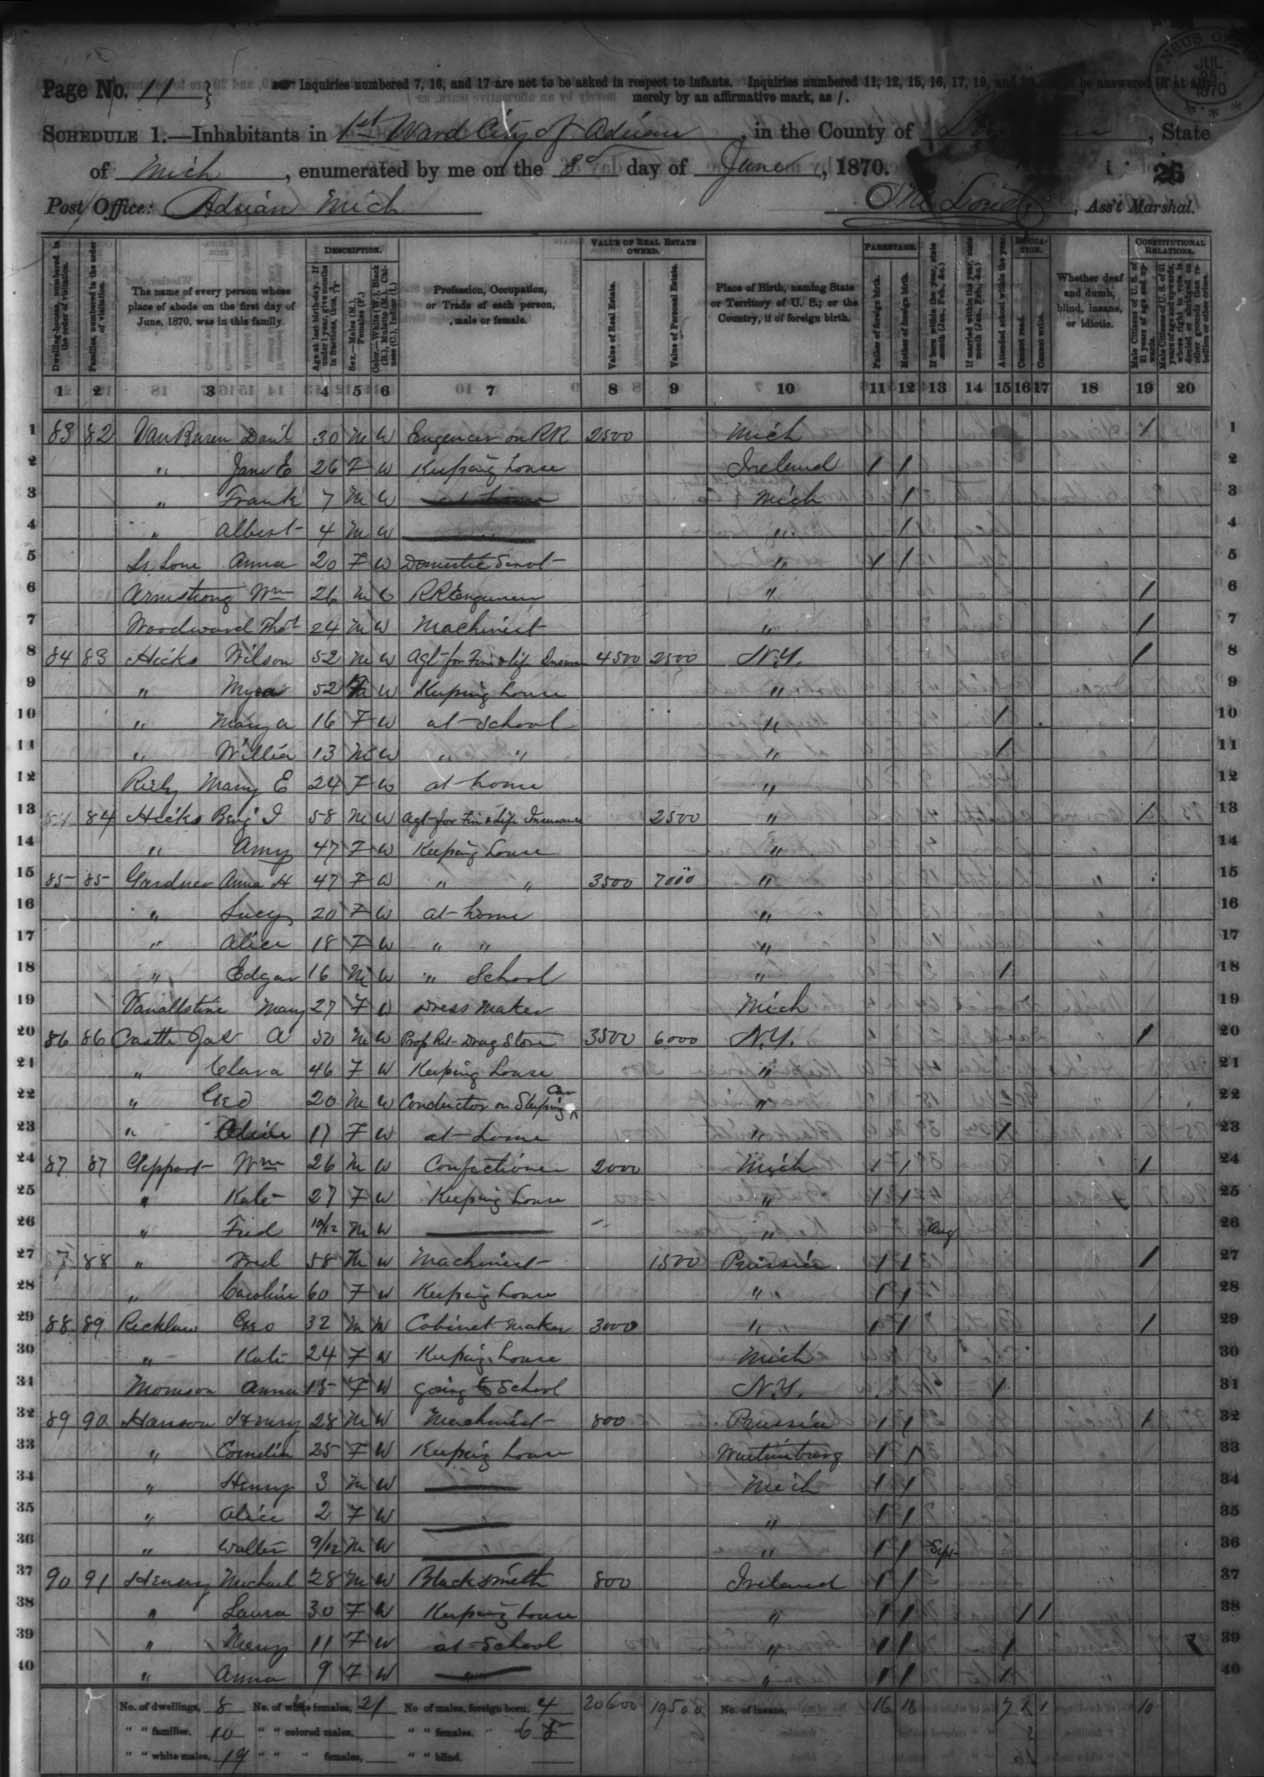 Page No. 11
Inquiries numbered 7, 16, and 17 are not to be asked in respect to infants. Inquiries numbered 11, 12, 15, 16, 17, 19, and
merely by an affirmative mark, as /.
SCHEDULE 1.—Inhabitants in 1st Ward City of Adrian, in the County of, State
of Mich, enumerated by me on the day of June, 1870. 26
Post Office: Adrian Mich, Ass't Marshal.
Dwelling-houses, numbered in the order of visitation.
Families, numbered in the order of visitation.
The name of every person whose place of abode on the first day of June, 1870, was in this family.
DESCRIPTION.
Profession, Occupation, or Trade of each person, male or female.
VALUE OF REAL ESTATE OWNED.
Value of Real Estate.
Value of Personal Estate.
Place of Birth, naming State or Territory of U. S.; or the Country, if of foreign birth.
PARENTAGE.
Father of foreign birth.
Mother of foreign birth.
Attended school within the year.
Cannot read.
Cannot write.
Whether deaf and dumb, blind, insane, or idiotic.
CONSTITUTIONAL RELATIONS.
1 2 3 4 5 6 7 8 9 10 11 12 13 14 15 16 17 18 19 20
1 83 82 Van Buren Dan'l 30 M W Engineer on RR 2500 Mich / 1
2 " Jane E 26 F W Keeping house Ireland / / 2
3 " Frank 7 M W Mich / 3
4 " Albert 4 M W " / 4
5 Anna 20 F W Domestic Servt " / / 5
6 Armstrong Wm 26 M W RR Engineer " / 6
7 Woodward Thos 24 M W Machinist " / 7
8 84 83 Hicks Wilson 52 M W Agt for Fire & Life Insura 4500 2500 N.Y. / 8
9 " Myra 52 F W Keeping house " 9
10 " Mary A 16 F W at School " / 10
11 " Willia 13 M W " " " / 11
12 Mary E 24 F W at home " 12
13 84 Hicks Benj I 58 M W Agt for Fire & Life Insurance 2500 " / 13
14 " Amy 47 F W Keeping house " 14
15 85 85 Gardner Anna H 47 F W " " 3500 7000 " 15
16 " Lucy 20 F W at home " 16
17 " Alice 18 F W " " " 17
18 " Edgar 16 M W " School " / 18
19 Vanallstine Mary 27 F W Dress Maker Mich 19
20 86 86 Castle Jas A 50 M W Drug Store 3500 6000 N.Y. / 20
21 " Clara 46 F W Keeping house " 21
22 " Geo 20 M W Conductor on Sleeping Car " 22
23 " Alice 17 F W at home " / 23
24 87 87 Geppart Wm 26 M W Confectioner 2000 Mich / / / 24
25 " Kate 27 F W Keeping house " / / 25
26 " Fred 10/12 M W " Aug 26
27 88 " Fred 58 M W Machinist 1500 Prussia / / / 27
28 " Caroline 60 F W Keeping house " / / 28
29 88 89 Geo 32 M W Cabinet maker 3000 " / / / 29
30 " Kate 24 F W Keeping house Mich 30
31 Morrison Anna 15 F W going to School N.Y. / 31
32 89 90 Hanson Henry 28 M W Machinist 800 Prussia / / / 32
33 " Cornelia 25 F W Keeping house Wurtemburg / / 33
34 " Henry 3 M W Mich / / 34
35 " Alice 2 F W " / / 35
36 " Walter 9/12 M W " / / Sept 36
37 90 91 Henery Michael 28 M W Blacksmith 800 Ireland / / 37
38 " Laura 30 F W Keeping house " / / / / 38
39 " Mary 11 F W at School " / / / 39
40 " Anna 9 F W " / / / 40
No. of dwellings, 8 No. of white females, 21 No of males, foreign born, 4 20600 19500 No. of insane, 16 18 7 2 1 10
" " families, 10 " " colored males, " " females, " 6
" " white males, 19 " " " females, " " blind.